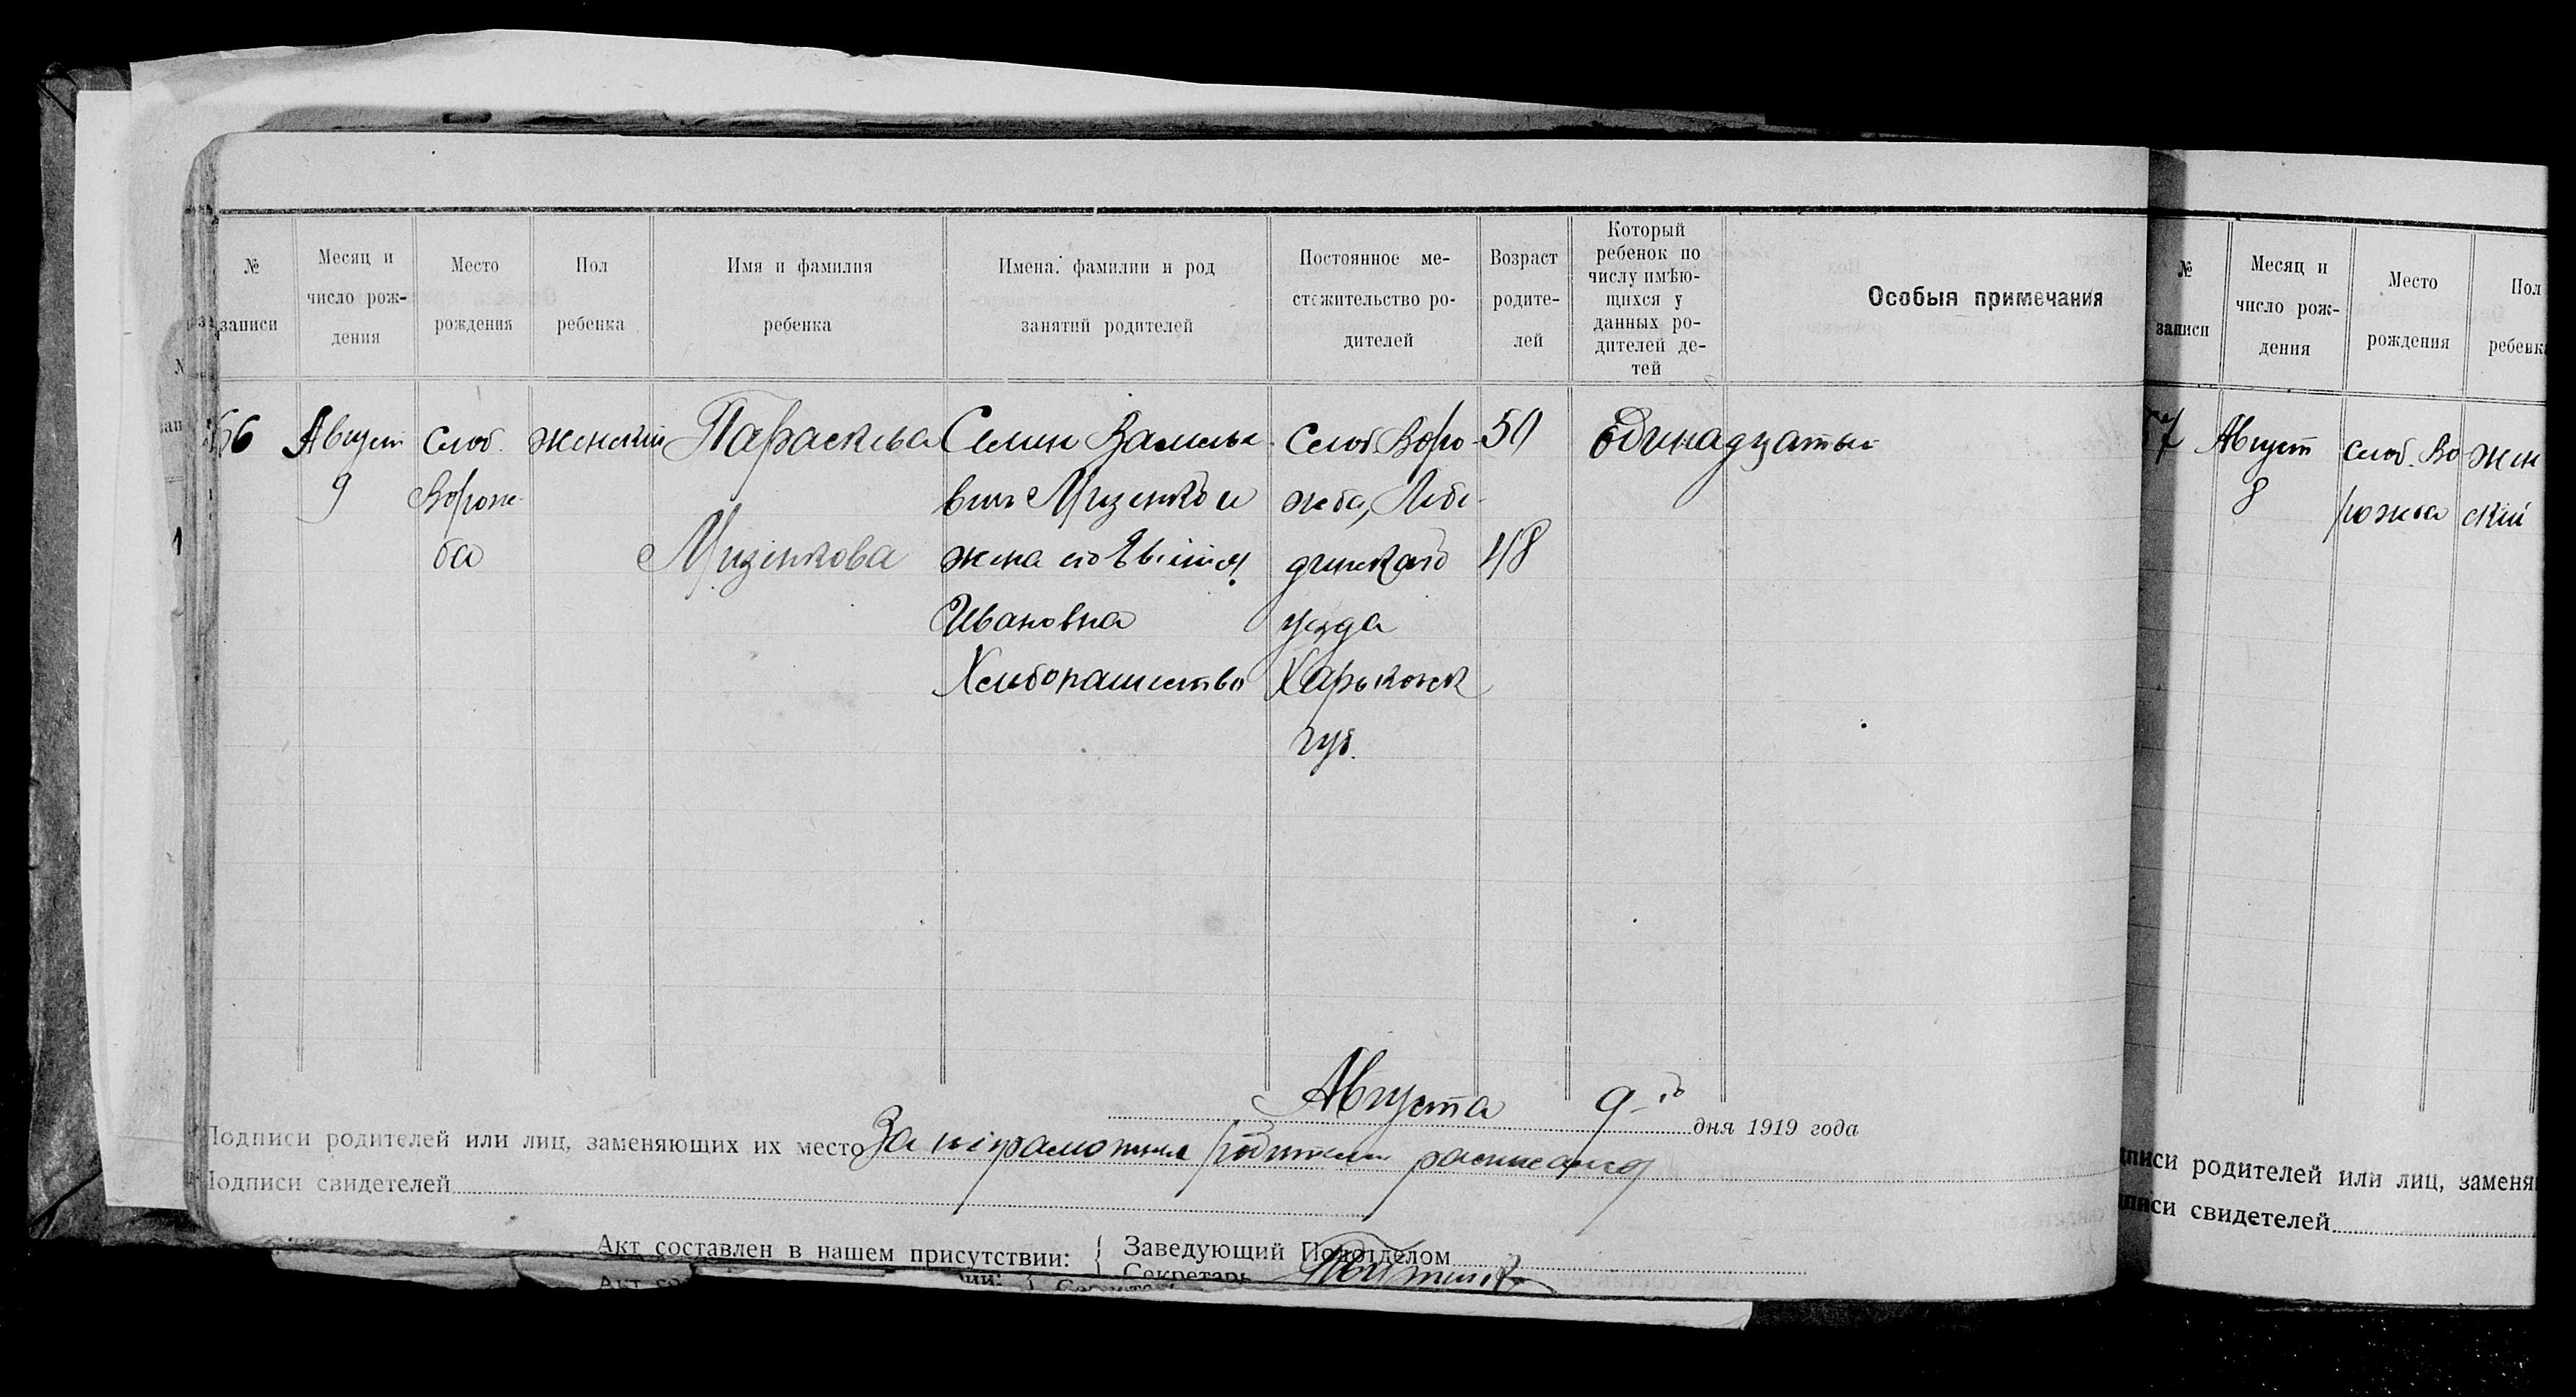 № записи
Месяц и число рождения
Место рождения
Пол ребенка
Имя и фамилия ребенка
Имена, фамилии и род занятий родителей
Постоянное местожительство родителей
Возраст родителей
Который ребенок по числу имѣющихся у данных родителей детей
Особыя примечания
66 Август слоб. женский Параскева Семен слоб. Воро- 50 Одинадцатый
9 Ворож- вич Мизенко и жба, Лебе-
ба Мизенкова жена его динскаго 48
Ивановна уезда
Хлебопашество Харьковск
губ.
Августа 9-го дня 1919 года
Подписи родителей или лиц, заменяющих их место За неграмотных родителей расписался
Подписи свидетелей
Акт составлен в нашем присутствии: { Заведующий Подотделом
Секретарь
№ записи
Месяц и число рождения
Место рождения
Пол ребенка
Август слоб. Во- жен-
8 рожба ский
писи родителей или лиц, заменя
писи свидетелей